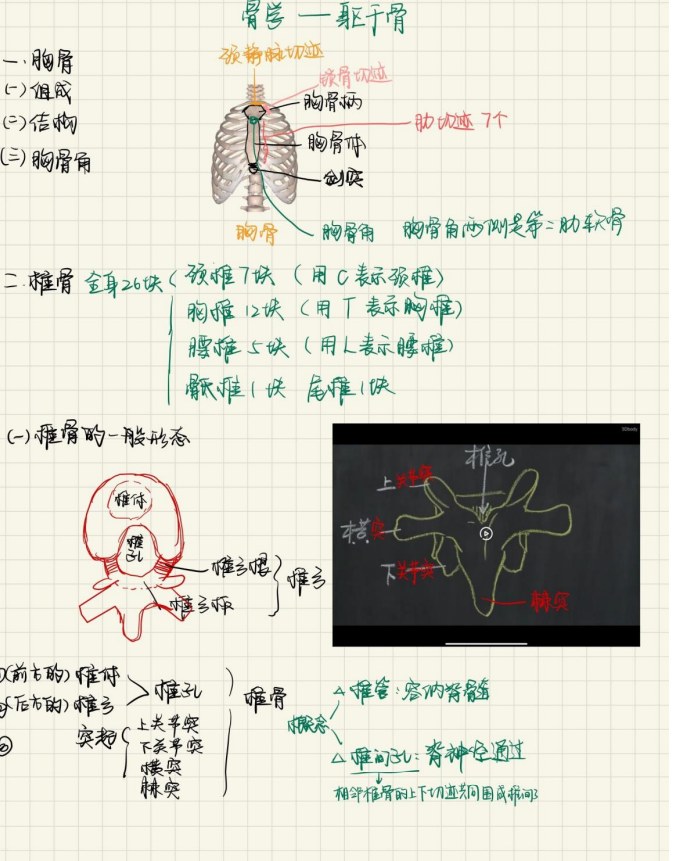 骨学 — 躯干骨
一. 胸骨
(一) 组成
(二) 结构
(三) 胸骨角
颈静脉切迹
锁骨切迹
胸骨柄
肋切迹 7个
胸骨体
剑突
胸骨
胸骨角 胸骨角两侧是第二肋软骨
二. 椎骨 全身26块
颈椎7块 (用C表示颈椎)
胸椎12块 (用T表示胸椎)
腰椎5块 (用L表示腰椎)
骶椎1块 尾椎1块
(一) 椎骨的一般形态
椎体
椎孔
椎弓根
椎弓板
椎弓
椎孔
上关节突
横突
下关节突
棘突
(前方的) 椎体
(后方的) 椎弓
椎孔
突起
上关节突
下关节突
横突
棘突
椎骨
概念
△ 椎管:容纳脊髓
△ 椎间孔:脊神经通过
相邻椎骨的上下切迹共同围成椎间